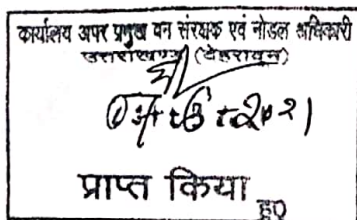 कार्यालय अपर प्रमुख वन संरक्षक एवं नोडल अधिकारी
उत्तराखण्ड (देहरादून)
प्राप्त किया
ह०